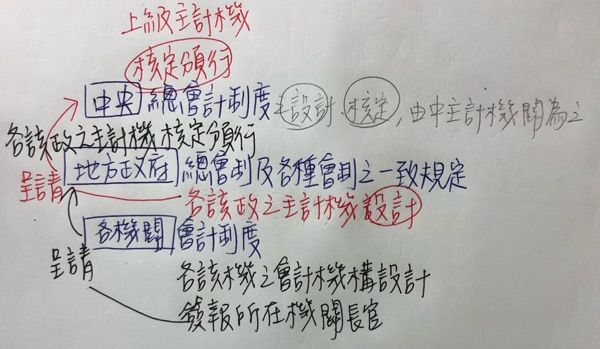 上級主計機
核定頒行
中央總會計制度之設計、核定，由中主計機關為之
各該政之主計機核定頒行
呈請 地方政府總會制及各種會制之一致規定
各該政之主計機設計
各機關會計制度
呈請
各該機之會計機構設計
簽報所在機關長官